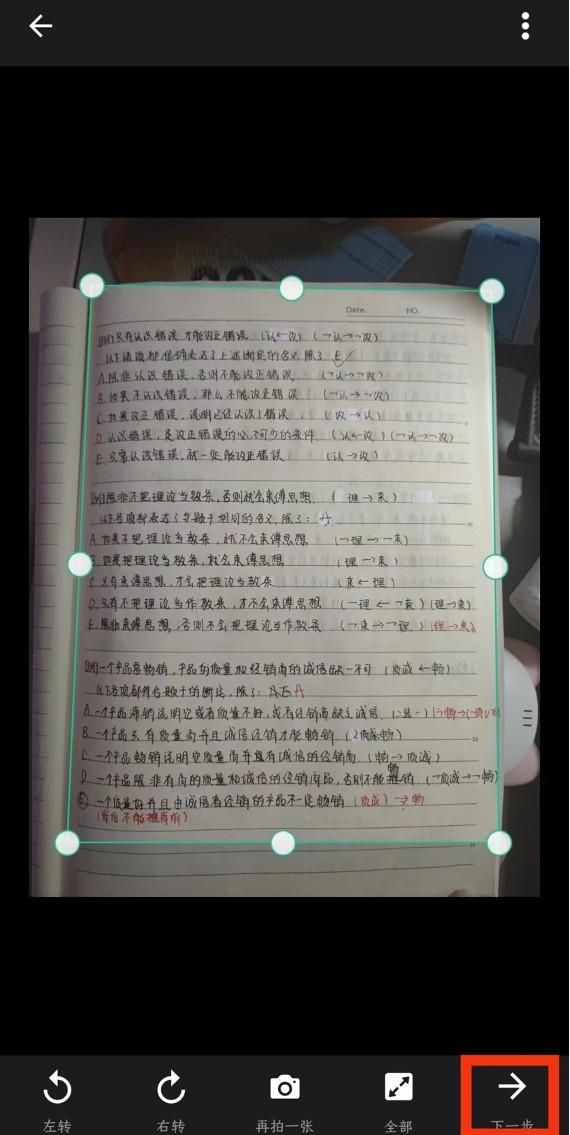 Date. NO.
[例] 只有认识错误 才能改正错误 (认←改) (¬认→¬改)
以下诸项都准确表达了上述断定的含义,除了 E
A.除非认识错误,否则不能改正错误 (¬认→¬改)
B.如果不认识错误,那么不能改正错误 (¬认→¬改)
C.如果改正错误,说明已经认识了错误 (改→认)
D.认识错误,是改正错误的必不可少的条件 (认←改) (¬认→¬改)
E.只要认识错误,就一定能改正错误 (认→改)
[例] 除非不把理论当教条,否则就会束缚思想. (理→束)
以下各项都表达了与题干相同的含义,除了: A
A.如果不把理论当教条,就不会束缚思想 (¬理→¬束)
B.如果把理论当教条,就会束缚思想 (理→束)
C.只有束缚思想,才会把理论当教条 (束←理)
D.只有不把理论当作教条,才不会束缚思想 (¬理←¬束) (理→束)
E.除非束缚思想,否则不会把理论当作教条 (¬束→¬理) (理→束)
[例] 一个产品要畅销,产品的质量和经销商的诚信缺一不可 (质诚←畅)
以下各项都符合题干的断定,除了: A E A
A.一个产品滞销说明它或者质量不好,或者经销商缺乏诚信
B.一个产品只有质量高并且诚信经销才能畅销 (质诚←畅)
C.一个产品畅销说明它质量高并且有诚信的经销商 (畅→质诚)
D.一个产品除非有高的质量和诚信的经销商,否则不能畅销 (¬质诚→¬畅)
E.一个质量好并且由诚信者经销的产品不一定畅销 (质诚) → 畅
(肯后不能推肯前)
左转 右转 再拍一张 全部 下一步